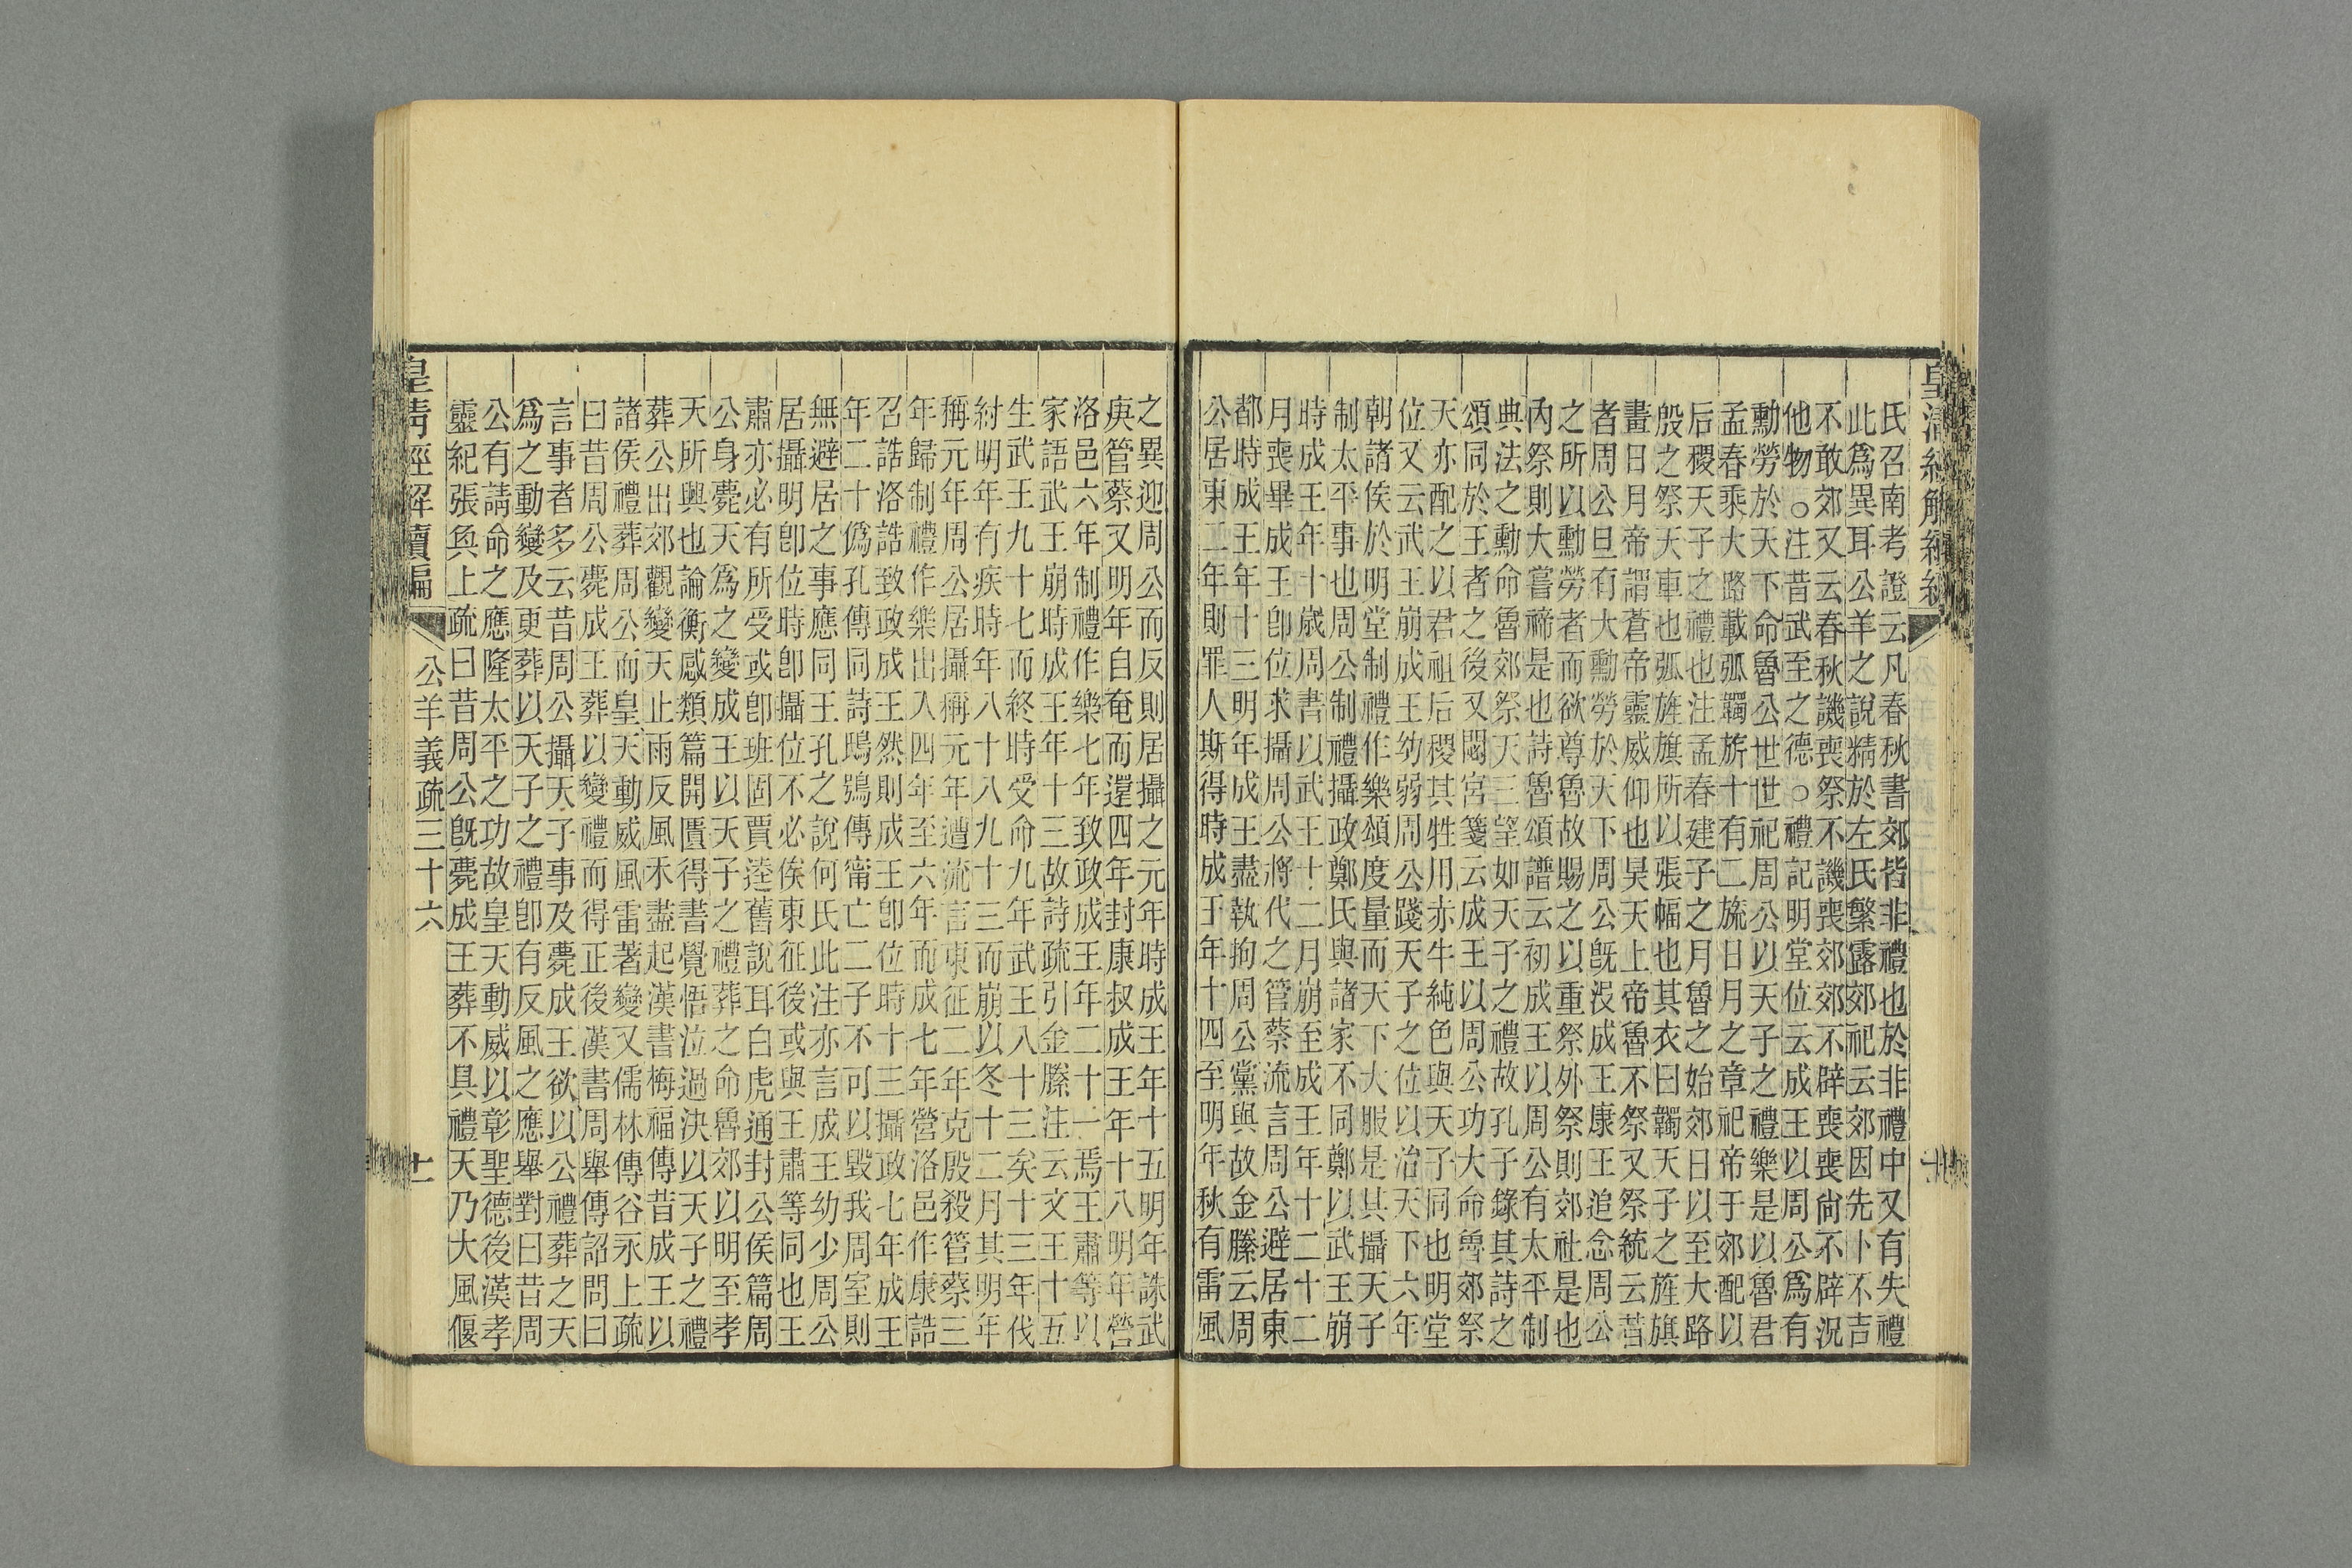 皇清經解續編
氏召南考證云凡春秋書郊皆非禮也於非禮中又有失禮
此爲異耳公羊之說精於左氏繁露郊祀云郊因先卜不吉
不敢郊又云春秋譏喪祭不譏喪郊郊不辟喪喪尚不辟況
他物○注昔武至之德○禮記明堂位云成王以周公爲有
勳勞於天下命魯公世世祀周公以天子之禮樂是以魯君
孟春乘大路載弧韣旂十有二旒日月之章祀帝于郊配以
后稷天子之禮也注孟春建子之月魯之始郊日以至大路
殷之祭天車也弧旌旗所以張幅也其衣曰韣天子之旌旗
畫日月帝謂蒼帝靈威仰也昊天上帝魯不祭又祭統云昔
者周公旦有大勳勞於天下周公旣沒成王康王追念周公
之所以勳勞者而欲尊魯故賜之以重祭外祭則郊社是也
內祭則大嘗禘是也詩魯頌譜云初成王以周公有太平制
典法之勳命魯郊祭天三望如天子之禮故孔子錄其詩之
頌同於王者之後又閟宮箋云成王以周公功大命魯郊祭
天亦配之以君祖后稷其牲用赤牛純色與天子同也明堂
位又云武王崩成王幼弱周公踐天子之位以治天下六年
朝諸侯於明堂制禮作樂頌度量而天下大服是其攝天子
制太平事也周公制禮攝政鄭氏與諸家不同鄭以武王崩
時成王年十歲周書以武王十二月崩至成王年十二十二
月喪畢成王卽位求攝周公將代之管蔡流言周公避居東
都時成王年十三明年成王盡執拘周公黨與故金縢云周
公居東二年則罪人斯得時成王年十四至明年秋有雷風
之異迎周公而反則居攝之元年時成王年十五明年誅武
庚管蔡又明年自奄而還四年封康叔成王年十八明年營
洛邑六年制禮作樂七年致政成王年二十一焉王肅等以
家語武王崩時成王年十三故詩疏引金縢注云文王十五
生武王九十七而終時受命九年武王八十三矣十三年伐
紂明年有疾時年八十八九十三而崩以冬十二月其明年
稱元年周公居攝稱元年遭流言東征二年克殷殺管蔡三
年歸制禮作樂出入四年至六年而成七年營洛邑作康誥
召誥洛誥致政成王然則成王卽位時十三攝政七年成王
年二十僞孔傳同詩鴟鴞傳甯亡二子不可以毀我周室則
無避居之事應同王孔之說何氏此注亦言成王幼少周公
居攝明卽位時卽攝位不必俟東征後或與王肅等同也王
肅亦必有所受或卽班固賈逵舊說耳白虎通封公侯篇周
公身薨天爲之變成王以天子之禮葬之命魯郊以明至孝
天所興也論衡感類篇開匱得書覺悟泣過決以天子之禮
葬公出郊觀變天止雨反風禾盡起漢書梅福傳昔成王以
諸侯禮葬周公而皇天動威風雷著變又儒林傳谷永上疏
曰昔周公薨成王葬以變禮而得正後漢書周舉傳詔問曰
言事者多云昔周公攝天子事及薨成王欲以公禮葬之天
爲之動變及更葬以天子之禮卽有反風之應舉對曰昔周
公有請命之應隆太平之功故皇天動威以彰聖德後漢孝
靈紀張奐上疏曰昔周公旣薨成王葬不具禮天乃大風偃
皇清經解續編 公羊義疏三十六 十一